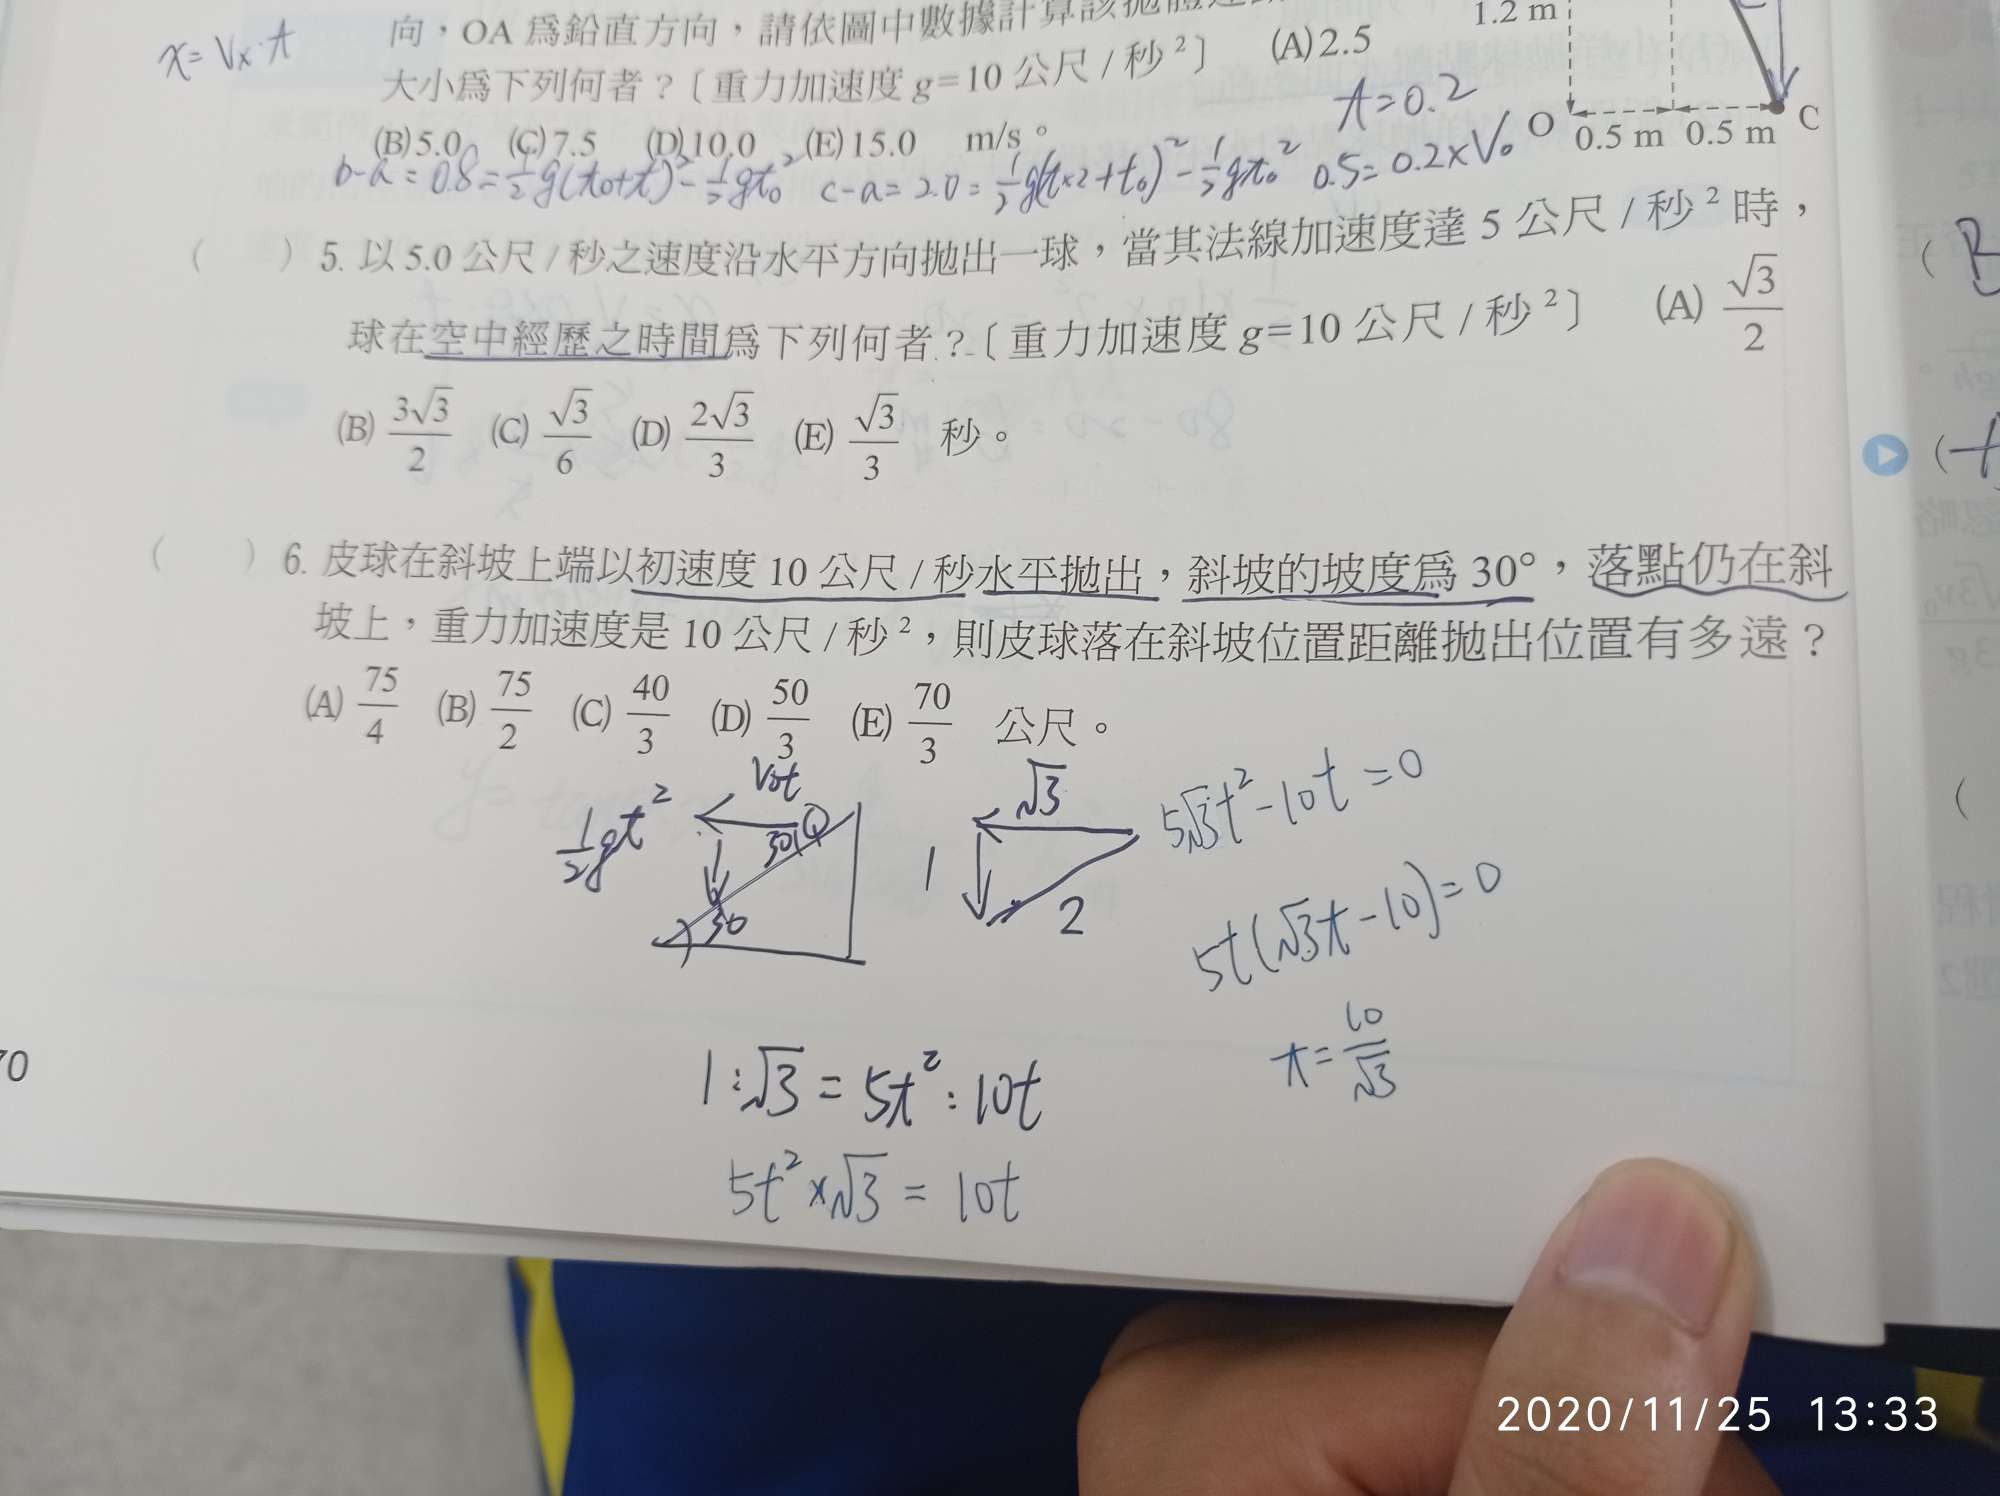 向，OA 為鉛直方向，請依圖中數據計算該拋體運
1.2 m
x=Vx·t
大小為下列何者？〔重力加速度 g=10 公尺/秒²〕 (A)2.5
t=0.2
(B)5.0 (C)7.5 (D)10.0 (E)15.0 m/s。
O 0.5 m 0.5 m C
b-a=0.8=½g(t₀+t)²-½gt₀² c-a=2.0=½g(t×2+t₀)²-½gt₀² 0.5=0.2×V₀
( ) 5. 以 5.0 公尺/秒之速度沿水平方向拋出一球，當其法線加速度達 5 公尺/秒² 時，
球在空中經歷之時間為下列何者？〔重力加速度 g=10 公尺/秒²〕 (A) √3/2
(B) 3√3/2 (C) √3/6 (D) 2√3/3 (E) √3/3 秒。
( ) 6. 皮球在斜坡上端以初速度 10 公尺/秒水平拋出，斜坡的坡度為 30°，落點仍在斜
坡上，重力加速度是 10 公尺/秒²，則皮球落在斜坡位置距離拋出位置有多遠？
(A) 75/4 (B) 75/2 (C) 40/3 (D) 50/3 (E) 70/3 公尺。
V₀t
½gt²
30
30
√3
1
2
5√3t²-10t=0
5t(√3t-10)=0
t=10/√3
1:√3=5t²:10t
5t²×√3=10t
70
2020/11/25 13:33